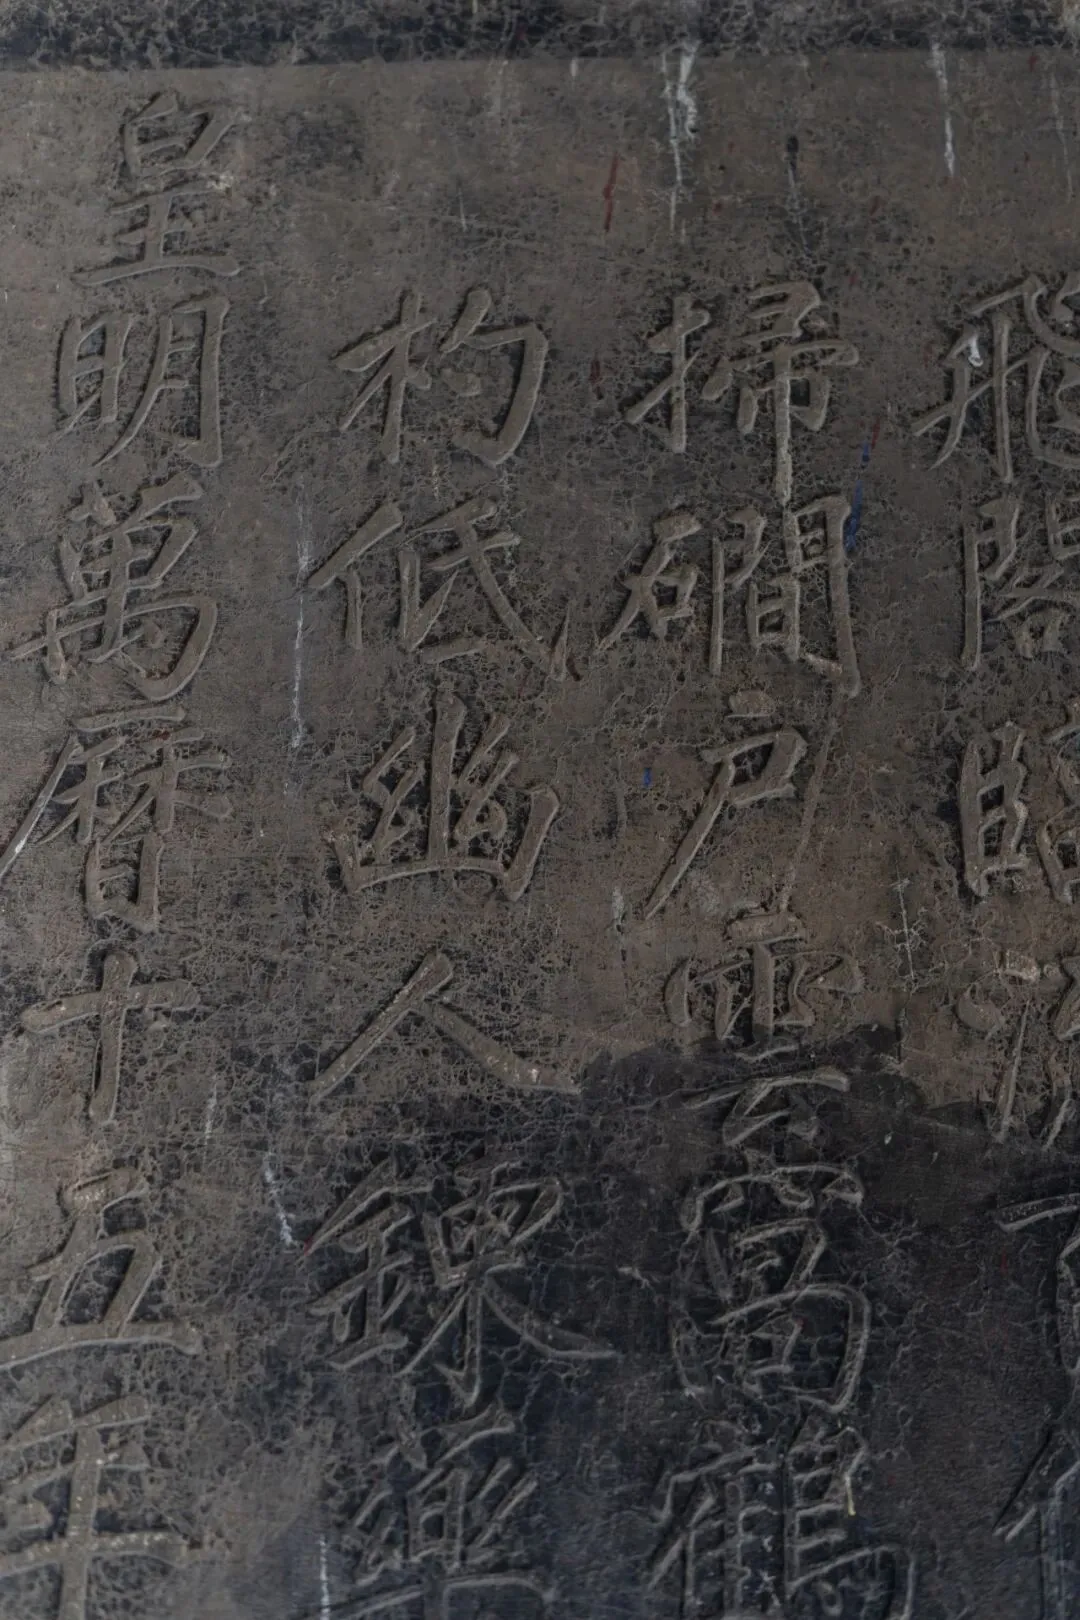 飛閣臨
掃磵戶雲窩鶴
杓低幽人鍊藥
皇明萬曆十五年